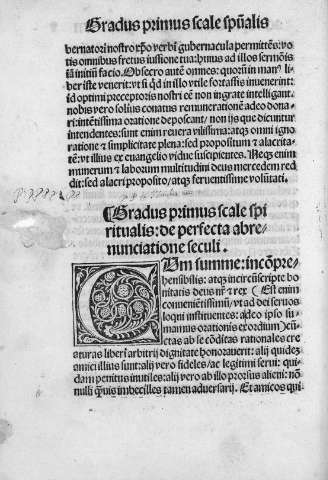 Gradus primus scale spũalis
bernatori nostro xpo verbi gubernacula permittẽs: vo
tis omnibus fretus iussione tua: hymus ad illos sermõis
iã initiũ facio. Obsecro autẽ omnes: quorũ in manꝰ li
ber iste venerit: vt si qd in illo vtile fortassis inuenerint:
id optimi preceptoris nostri eẽ non ingrate intelligant.
nobis vero solius conatus remunerationẽ a deo dona
ri: intẽtissima oratione deposcant/ non ijs que dicuntur
intendentes: sunt enim reuera vilissima: atqz omni igno
ratione & simplicitate plena: sed propositum & alacrita
tẽ: vt illius ex euangelio vidue suscipientes. Neqz enim
munerum & laborum multitudini deus mercedem red
dit: sed alacri proposito/ atqz feruentissime volũtati.
¶Gradus primus scale spi
ritualis: de perfecta abre-
nunciatione seculi.
CUm summe: incõpre-
hensibilis: atqz incircũscripte bo
nitatis deus nr̃ & rex (Est enim
conuenientissimũ/ vt ad dei seruos
loqui instituentes: a deo ipso su-
mamus orationis exordium) cũ-
ctas ab se cõditas rationales cre
aturas liberi arbitrij dignitate honorauerit: alij quidẽ
amici illius sunt: alij vero fideles/ ac legitimi serui: qui-
dam penitus inutiles: alij vero ab illo prorsus alieni: nõ
nulli quis imbecilles tamen aduersarij. Et amicos qui-